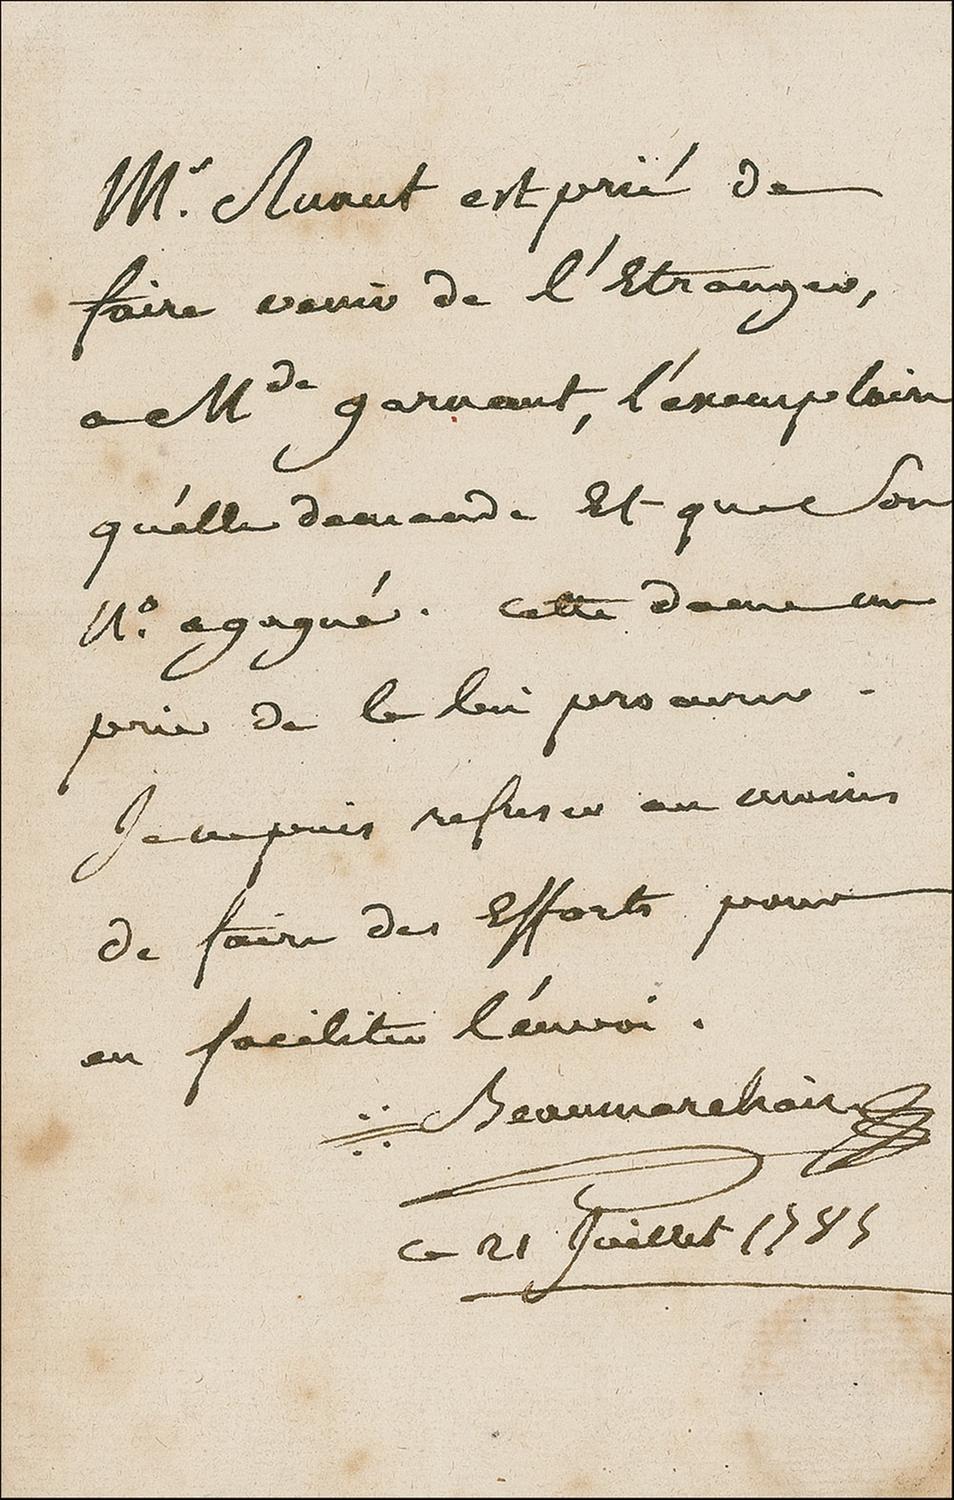 Mr. Ruaut est prié de
faire venir de l'Etranger,
a Mde garnaut, l'exemplaire
qu'elle demande Et que Son
N.° a gagné. cette dame me
prie de le lui procurer.
Je ne puis refuser au moins
de faire des Efforts pour
en faciliter l'énvoi.
Beaumarchais
ce 21 Juillet 1785